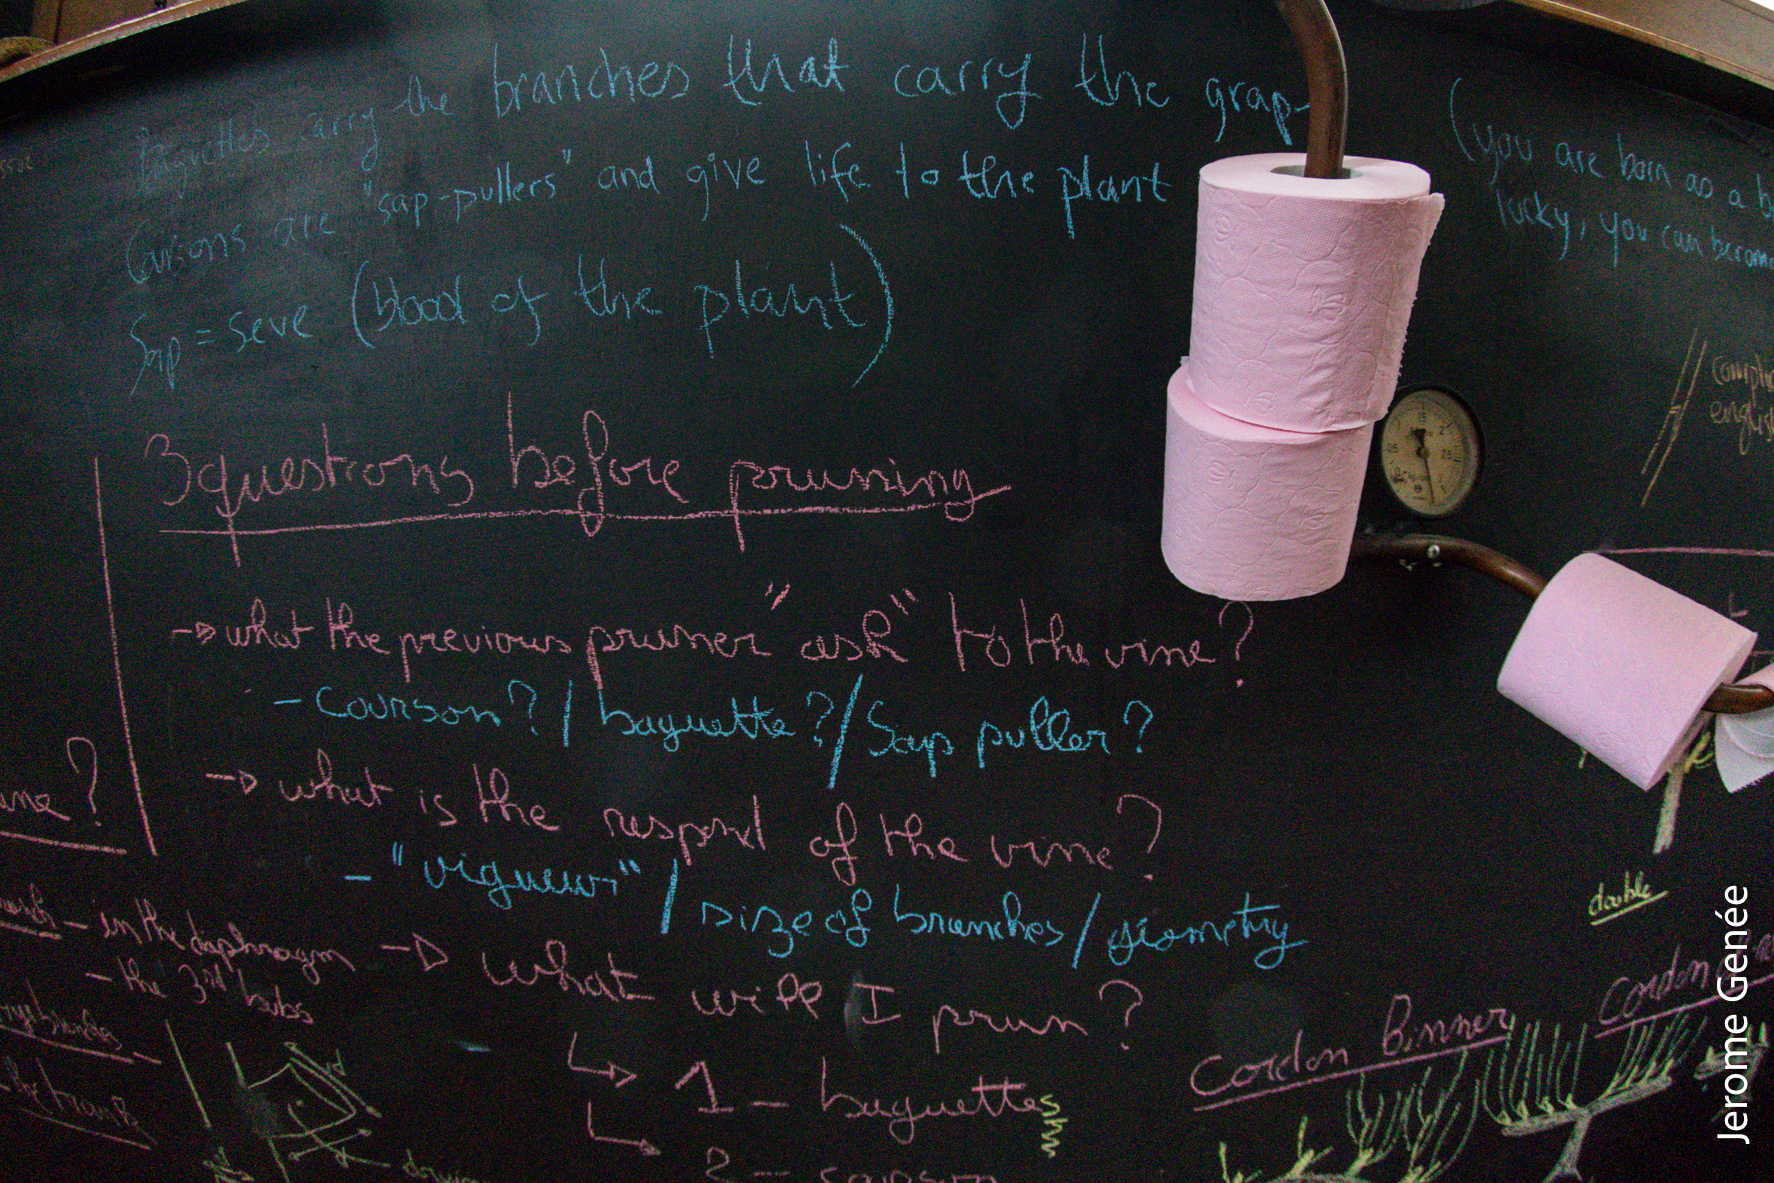 Baguettes carry the branches that carry the grap-
Coursons are "sap-pullers" and give life to the plant
Sap = seve (blood of the plant)
(you are born as a
lucky, you can become
3 questions before pruning
-> what the previous pruner "ask" to the vine?
- Courson? / baguette? / Sap puller?
-> what is the respond of the vine?
- "vigueur" / size of branches / géometry
-> What will I prun?
1 - baguettes
2 -
- in the diaphragm
- the 3rd bubs
double
Cordon Binner
Cordon
Jerome Genée